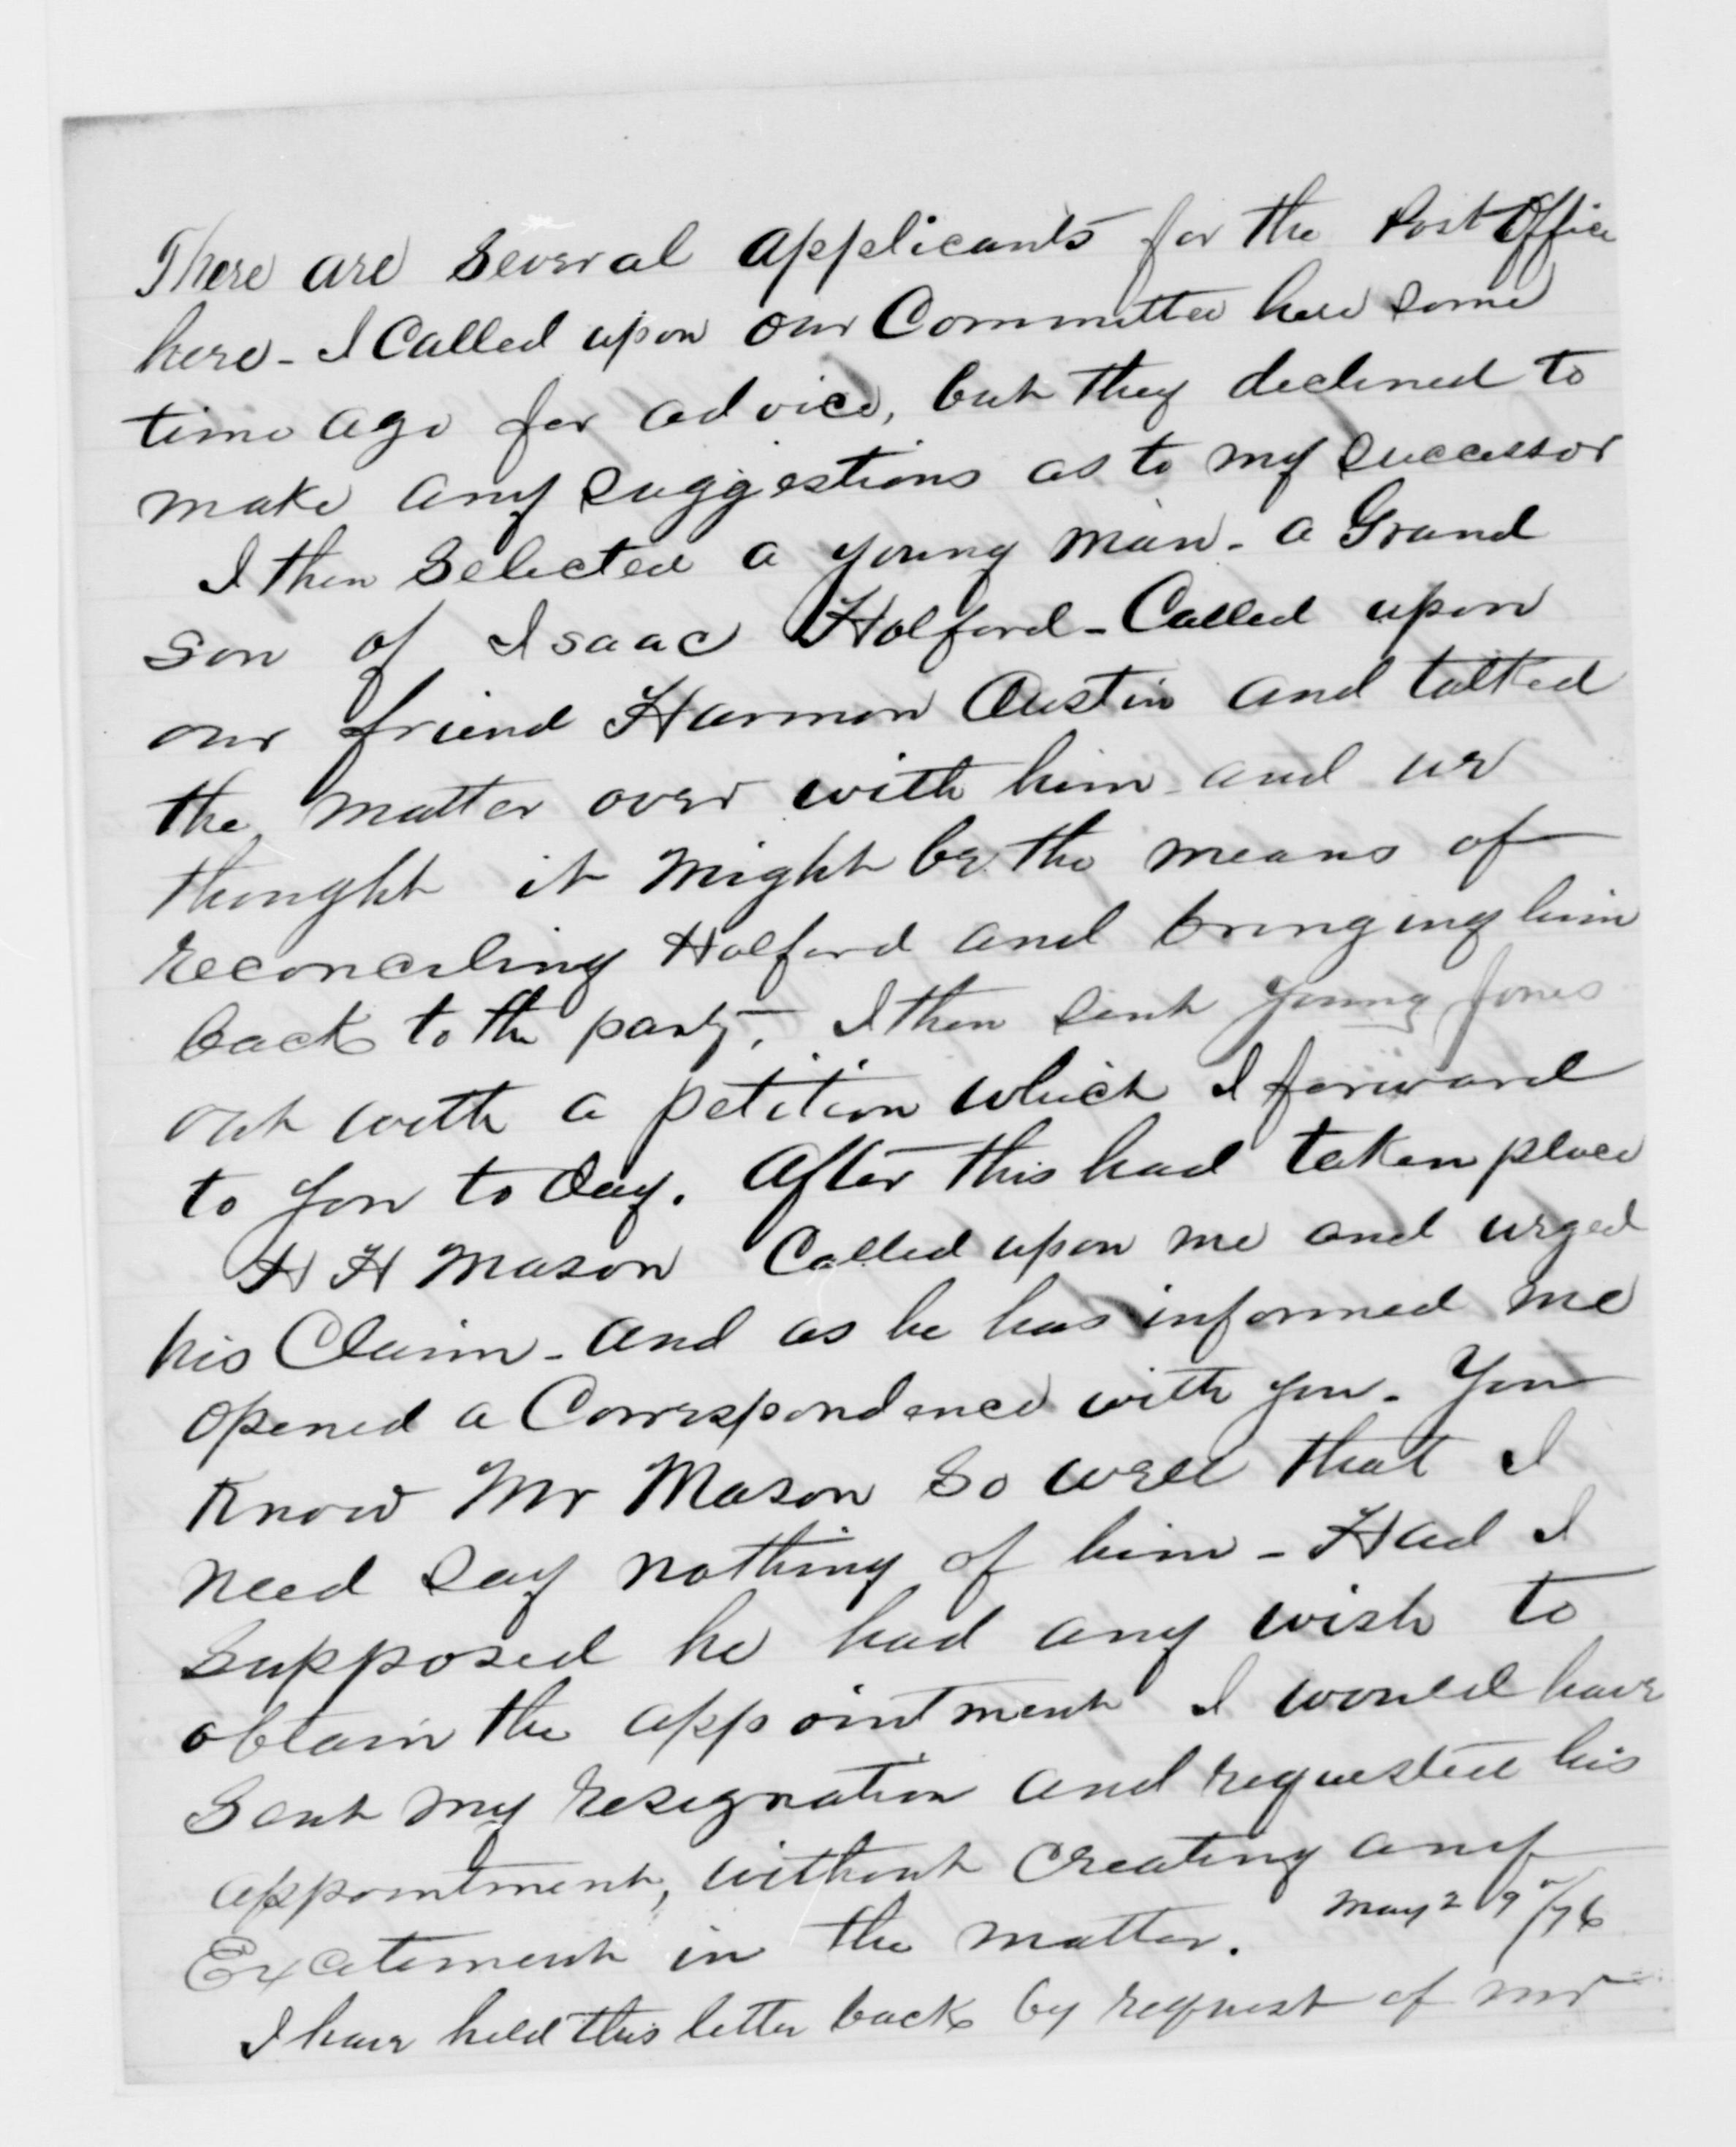 There are Several applicants for the Post Office
here - I Called upon our Committee here some
time ago for advice, but they declined to
make any suggestions as to my successor
I then Selected a young man - a Grand
son of Isaac Holford - Called upon
our friend Harmon Austin and talked
the matter over with him and we
thought it might be the means of
reconciling Holford and bringing him
back to the party, I then sent young Jones
out with a petition which I forward
to you to day. After this had taken place
H H Mason Called upon me and urged
his Claim - and as he has informed me
opened a Correspondence with you - You
Know Mr Mason So well that I
need say nothing of him - Had I
Supposed he had any wish to
obtain the appointment I would have
Sent my resignation and requested his
appointment, without creating any
Excitement in the matter. May 29"/76
I have held this letter back by request of Mr